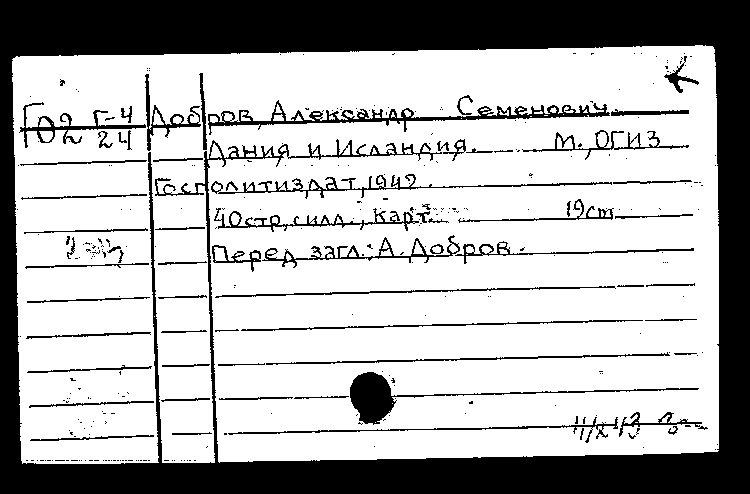 Г02 Г-4 Добров, Александр Семенович.
24
Дания и Исландия. М., ОГИЗ
Госполитиздат, 1942.
40стр, силл., карт. 19cm
Перед загл.: А. Добров.